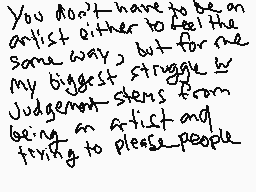 You don't have to be an
artist either to feel the
same way, but for me
my biggest struggle w
Judgement stems from
being an artist and
trying to please people